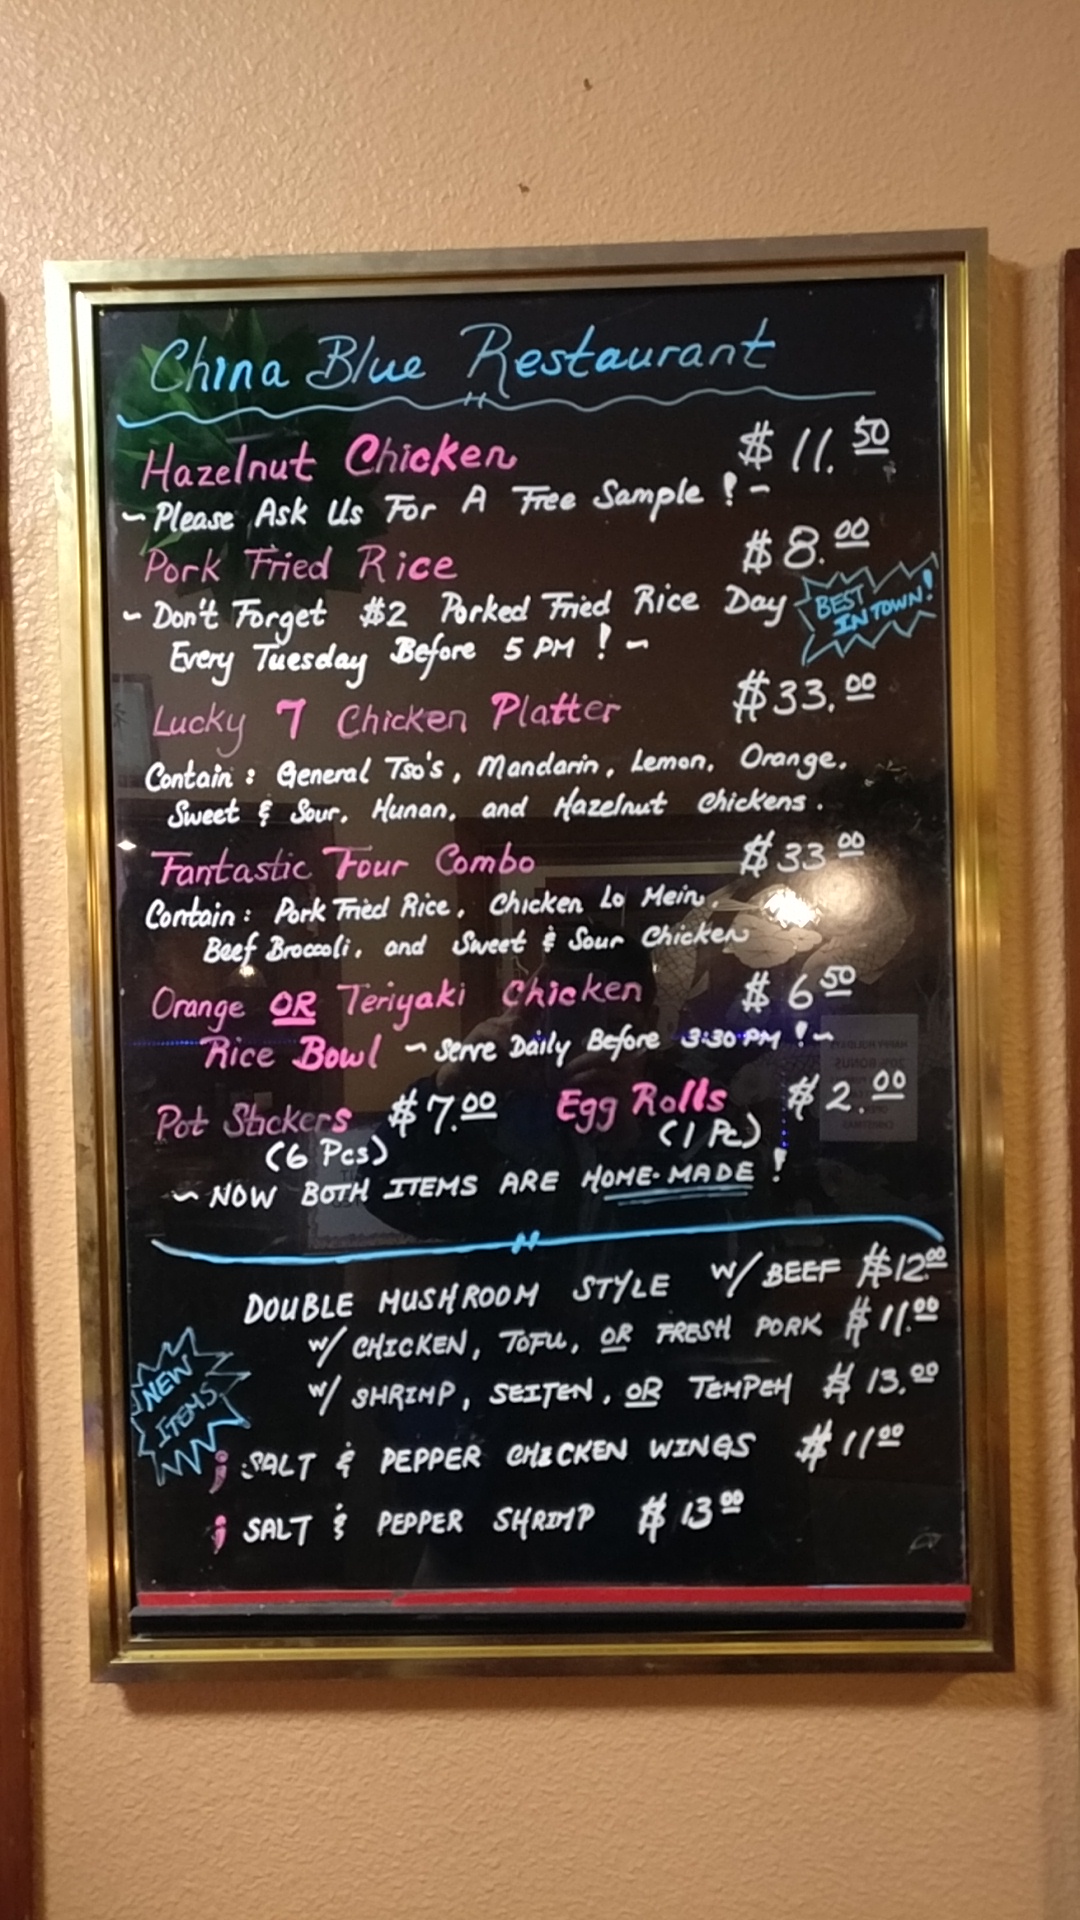 China Blue Restaurant
Hazelnut Chicken $11.50
~ Please Ask Us For A Free Sample ! ~
Pork Fried Rice $8.00
~ Don't Forget $2 Porked Fried Rice Day
BEST
IN TOWN!
Every Tuesday Before 5 PM ! ~
Lucky 7 Chicken Platter $33.00
Contain : General Tso's, Mandarin, Lemon, Orange,
Sweet & Sour, Hunan, and Hazelnut Chickens.
Fantastic Four Combo $33.00
Contain : Pork Fried Rice, Chicken Lo Mein,
Beef Broccoli, and Sweet & Sour Chicken
Orange OR Teriyaki Chicken $6.50
Rice Bowl ~ Serve Daily Before 3:30 PM ! ~
Pot Stickers $7.00 Egg Rolls $2.00
(6 Pcs) (1 Pc)
~ NOW BOTH ITEMS ARE HOME-MADE !
DOUBLE MUSHROOM STYLE W/ BEEF $12.00
W/ CHICKEN, TOFU, OR FRESH PORK $11.00
W/ SHRIMP, SEITEN, OR TEMPEH $13.00
NEW
ITEMS
SALT & PEPPER CHICKEN WINGS $11.00
SALT & PEPPER SHRIMP $13.00